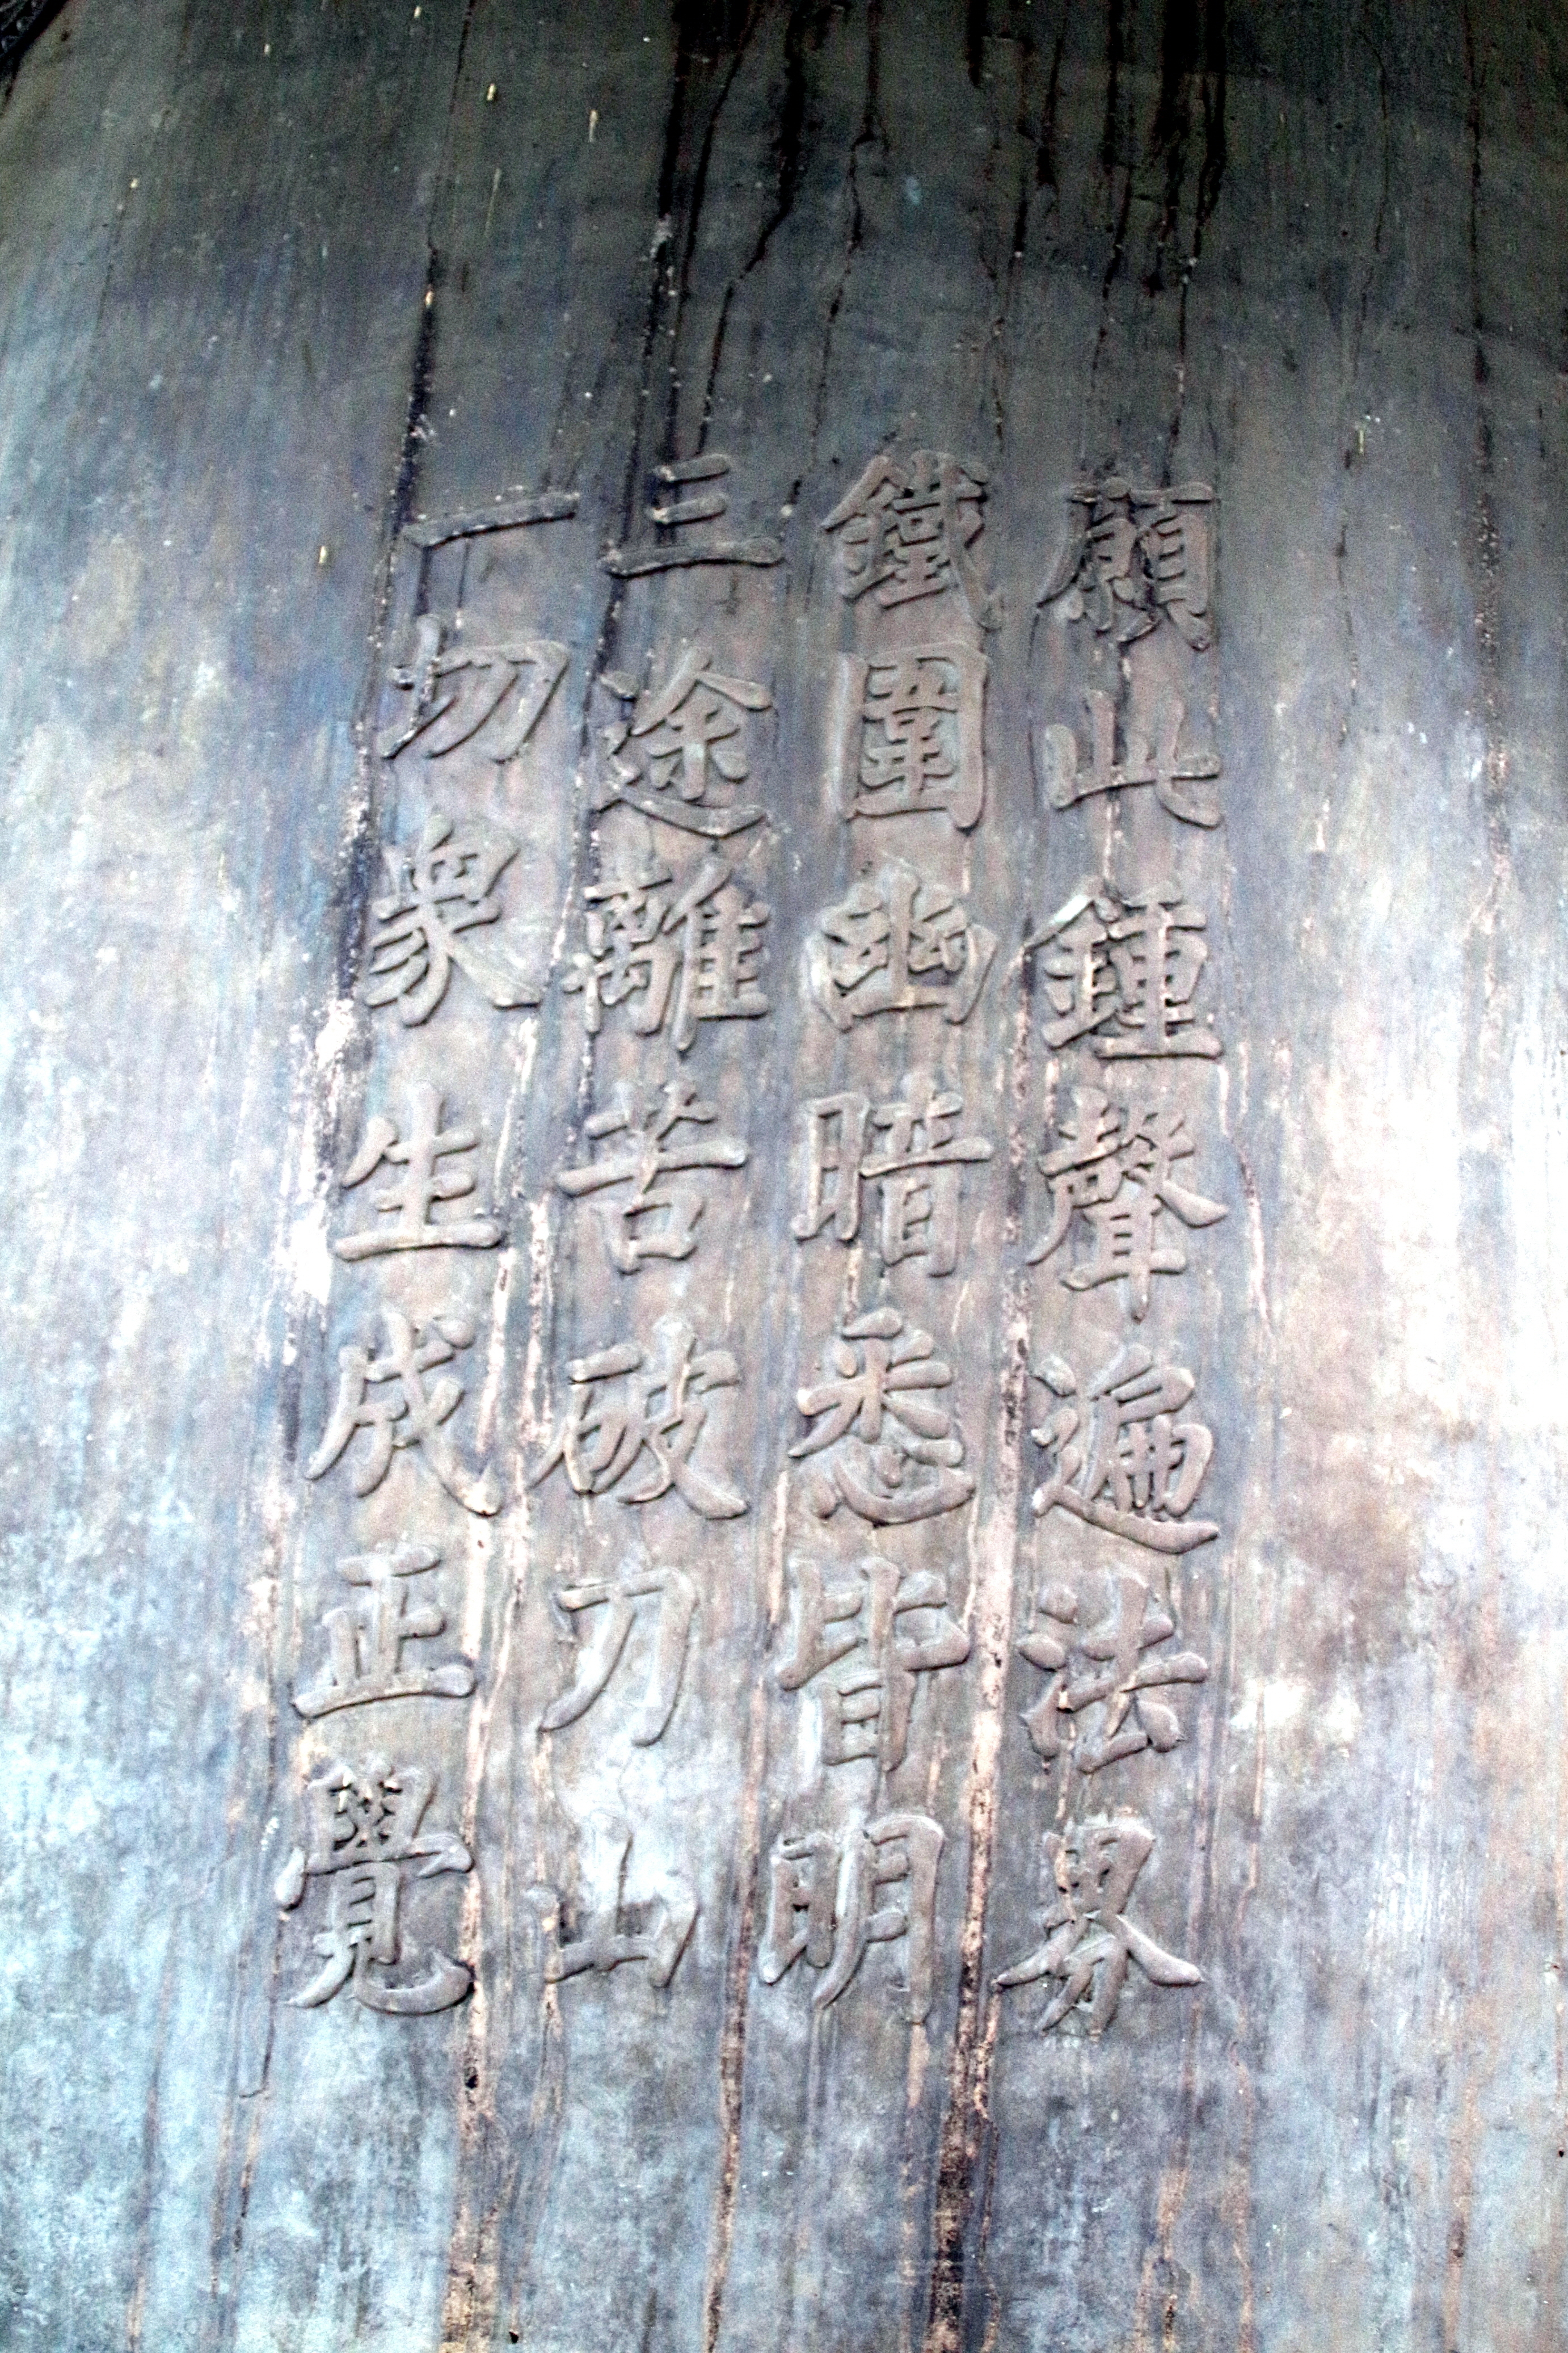 願此鍾聲遍法界
鐵圍幽暗悉皆明
三途離苦破刀山
一切衆生成正覺